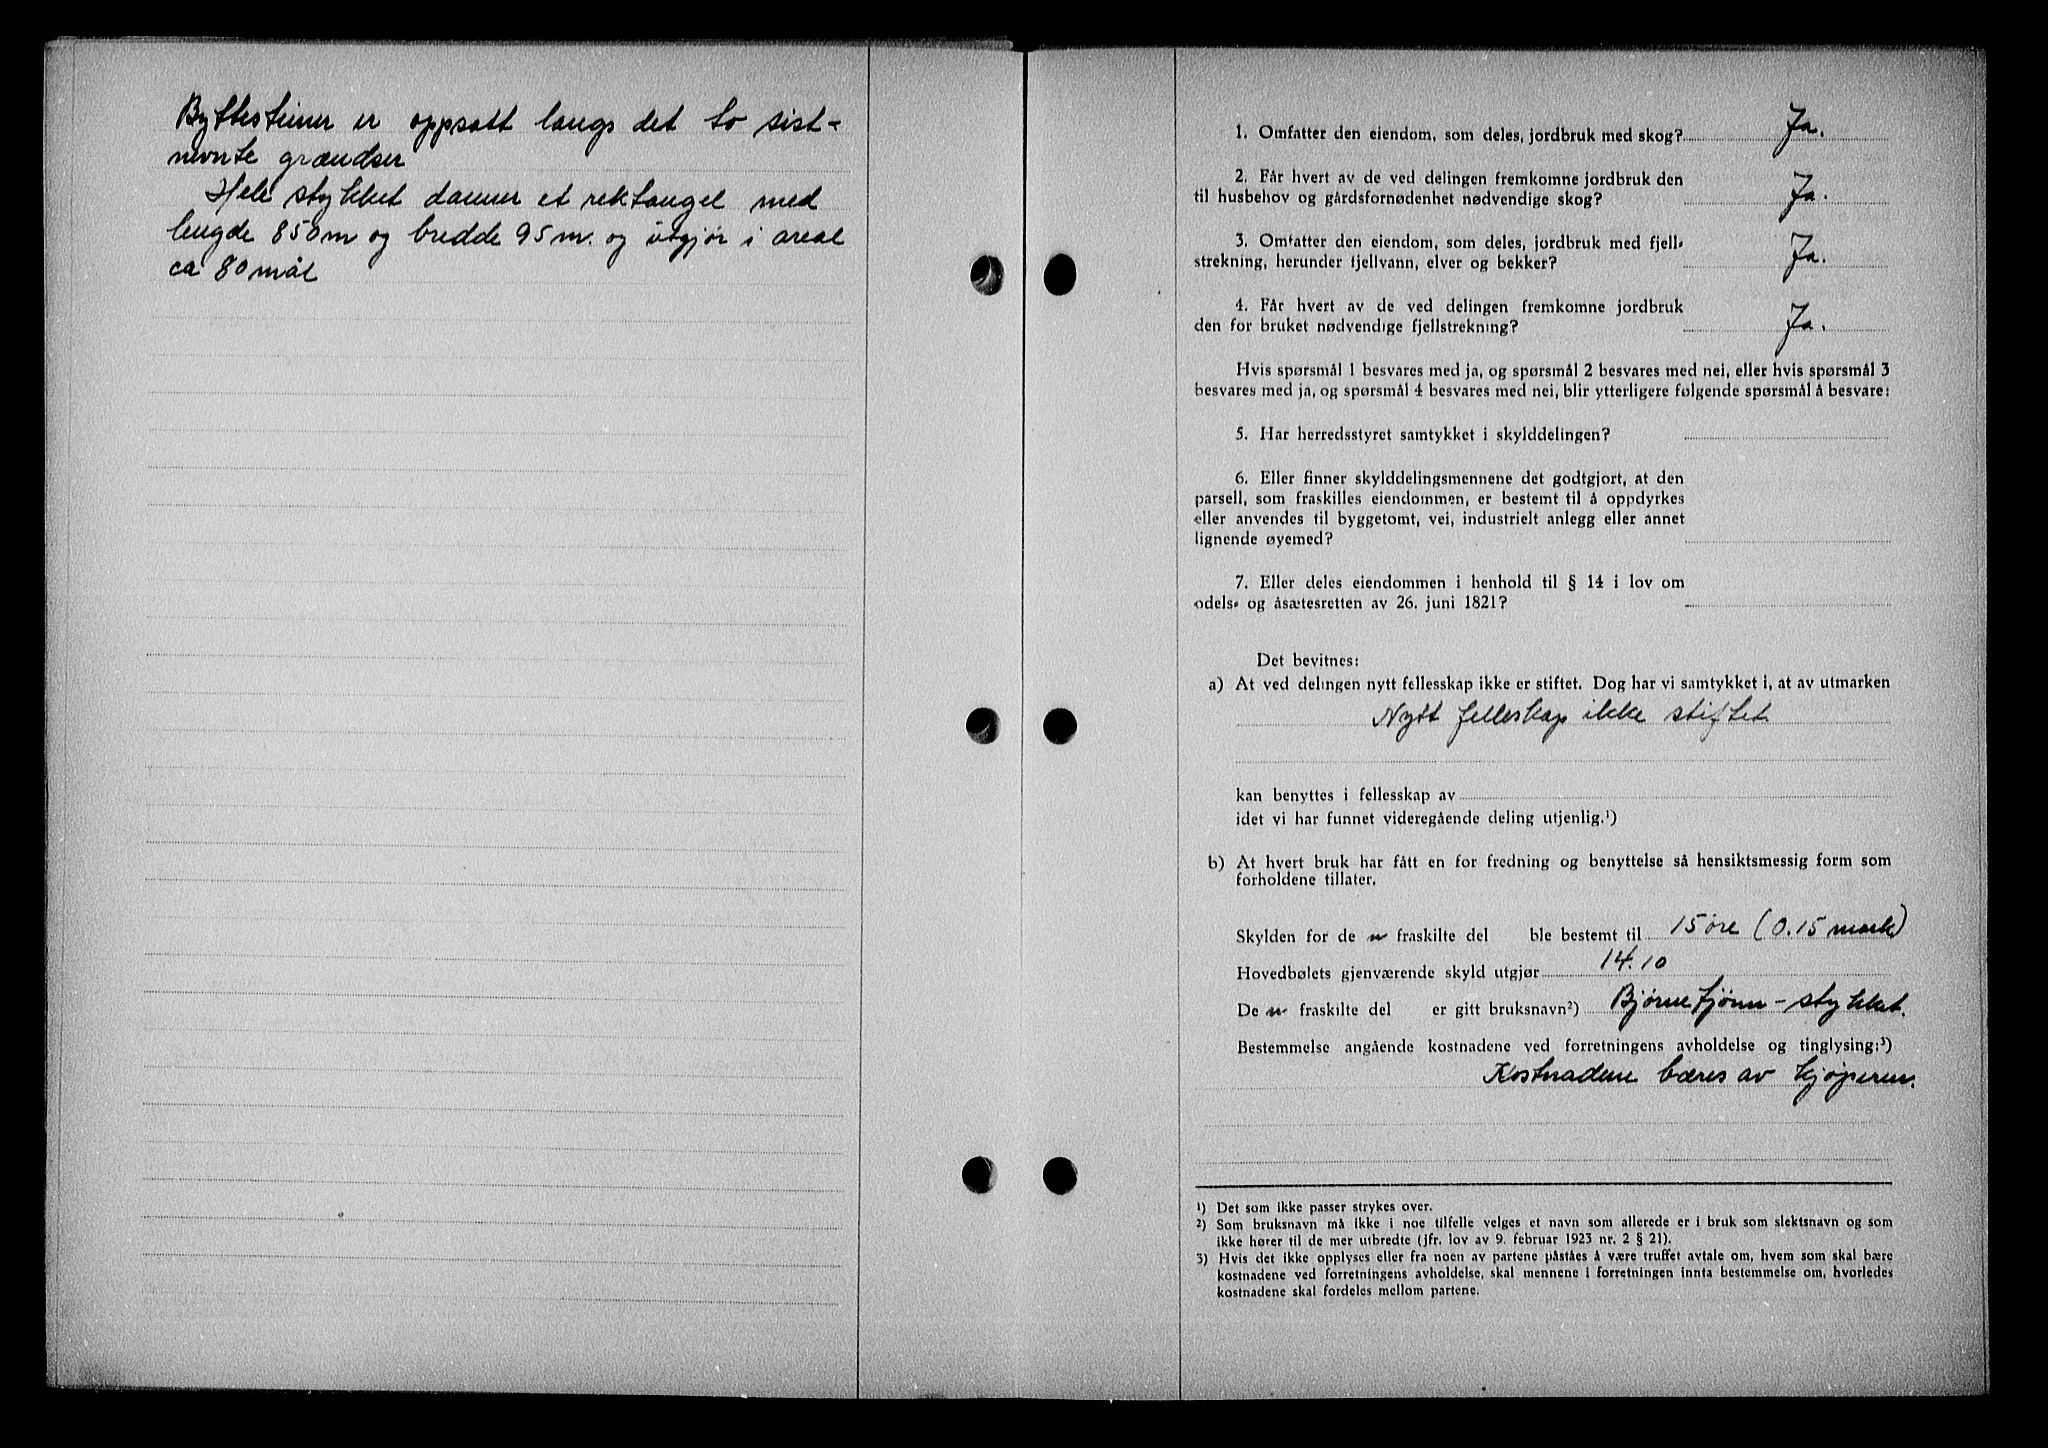 Byttesteiner er oppsatt langs det to sist-
nevnte grændser
Hele stykket danner et rektangel med
lengde 850 m og bredde 95 m. og utgjør i areal
ca 80 mål
1. Omfatter den eiendom, som deles, jordbruk med skog? Ja.
2. Får hvert av de ved delingen fremkomne jordbruk den
til husbehov og gårdsfornødenhet nødvendige skog? Ja.
3. Omfatter den eiendom, som deles, jordbruk med fjell-
strekning, herunder fjellvann, elver og bekker? Ja.
4. Får hvert av de ved delingen fremkomne jordbruk
den for bruket nødvendige fjellstrekning? Ja.
Hvis spørsmål 1 besvares med ja, og spørsmål 2 besvares med nei, eller hvis spørsmål 3
besvares med ja, og spørsmål 4 besvares med nei, blir ytterligere følgende spørsmål å besvare:
5. Har herredsstyret samtykket i skylddelingen?
6. Eller finner skylddelingsmennene det godtgjort, at den
parsell, som fraskilles eiendommen, er bestemt til å oppdyrkes
eller anvendes til byggetomt, vei, industrielt anlegg eller annet
lignende øyemed?
7. Eller deles eiendommen i henhold til § 14 i lov om
odels- og åsætesretten av 26. juni 1821?
Det bevitnes:
a) At ved delingen nytt fellesskap ikke er stiftet. Dog har vi samtykket i, at av utmarken
Nytt felleskap ikke stiftet
kan benyttes i fellesskap av
idet vi har funnet videregående deling utjenlig.¹)
b) At hvert bruk har fått en for fredning og benyttelse så hensiktsmessig form som
forholdene tillater.
Skylden for de n fraskilte del ble bestemt til 15 øre (0.15 mark)
Hovedbølets gjenværende skyld utgjør 14.10
De n fraskilte del er gitt bruksnavn²) Bjørnetjønn-stykket.
Bestemmelse angående kostnadene ved forretningens avholdelse og tinglysing:³)
Kostnadene bæres av kjøperen.
¹) Det som ikke passer strykes over.
²) Som bruksnavn må ikke i noe tilfelle velges et navn som allerede er i bruk som slektsnavn og som
ikke hører til de mer utbredte (jfr. lov av 9. februar 1923 nr. 2 § 21).
3) Hvis det ikke opplyses eller fra noen av partene påståes å være truffet avtale om, hvem som skal bære
kostnadene ved forretningens avholdelse, skal mennene i forretningen innta bestemmelse om, hvorledes
kostnadene skal fordeles mellom partene.